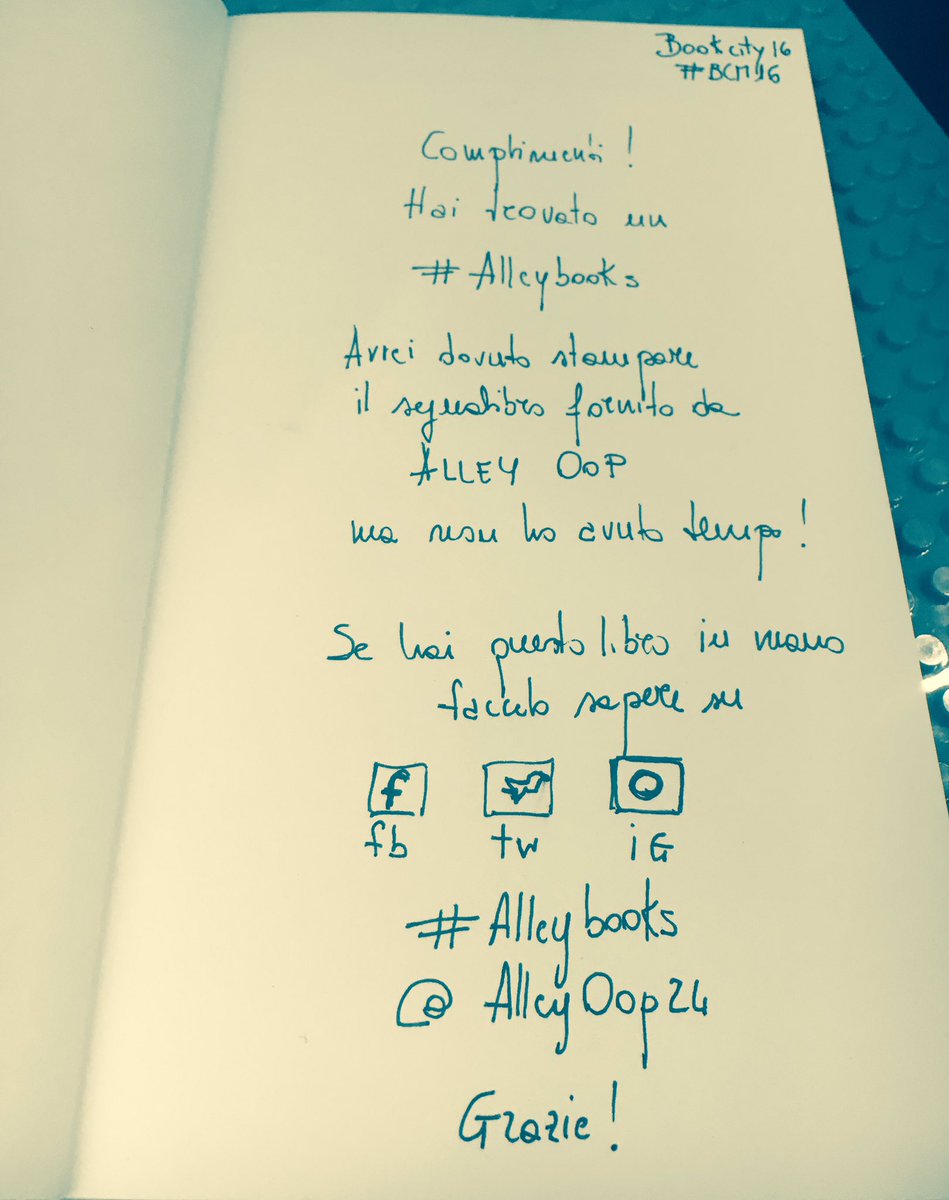 Bookcity16
#BCM16
Complimenti!
Hai trovato un
#Alleybooks
Avrei dovuto stampare
il segnalibro fornito da
ALLEY OOP
ma non ho avuto tempo!
Se hai questo libro in mano
faccelo sapere su
f
fb tw iG
#Alleybooks
@AlleyOop24
Grazie!